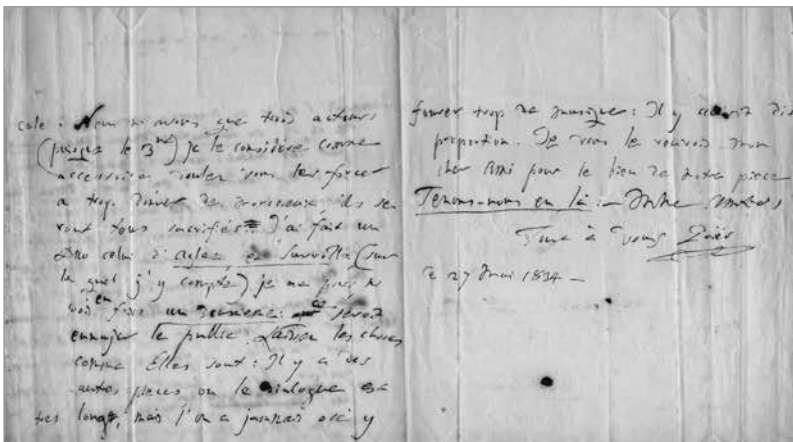 cale. Nous n'avons que trois acteurs
(puisque le 3me) je le considère comme
accessoire voulez vous les forcer
a trop donner de morceaux ils se
ront tous sacrifiés. J'ai fait un
Duo celui d'aglaé et Surville (sur
le quel j'y compte) je ne puis ni
dois en faire un deuxieme: ce seroit
ennuyer le public. Laissez les choses
comme Elles sont: Il y a des
autres pieces ou le Dialogue est
tres longs, mais l'on a jamais osé y
fourer trop de musique: Il y auroit dis
proportion. Je vous le renvoi mon
cher Ami pour le bien de notre piece
Tenons-nous en là:
Tout à vous Zaïs
Ce 27 Mai 1834 —